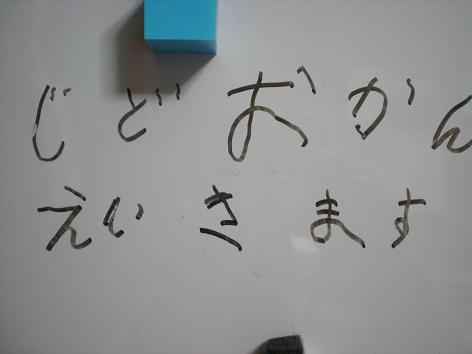 じどおかん
えいきます